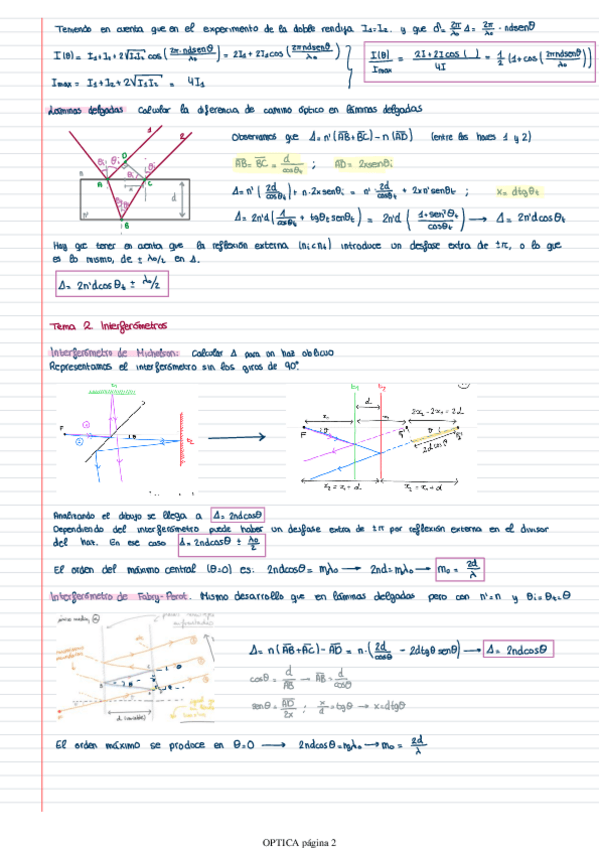 Teniendo en cuenta que en el experimento de la doble rendija I₁=I₂. y que δ = 2π/λ₀ Δ = 2π/λ₀ · ndsenθ
I(θ) = I₁ + I₂ + 2√I₁I₂ cos(2π·ndsenθ/λ₀) = 2I₁ + 2I₁cos(2πndsenθ/λ₀)
I(θ)/Imax = 2I + 2Icos( )/4I = 1/2 (1+cos(2πndsenθ/λ₀))
Imax = I₁ + I₂ + 2√I₁I₂ = 4I₁
Láminas delgadas Calcular la diferencia de camino óptico en láminas delgadas
1 2
Observamos que Δ = n'(AB+BC) - n(AD) (entre los haces 1 y 2)
AB = BC = d/cosθt ; AD = 2xsenθi
A B C D n n' d x θi θt
Δ = n'(2d/cosθt) + n·2xsenθi = n' 2d/cosθt + 2xn'senθt ; x = dtgθt
Δ = 2n'd(1/cosθt + tgθt senθt) = 2n'd(1+sen²θt/cosθt) → Δ = 2n'dcosθt
Hay que tener en cuenta que la reflexión externa (ni<nt) introduce un desfase extra de ±π, o lo que
es lo mismo, de ± λ₀/2 en Δ.
Δ = 2n'dcosθt ± λ₀/2
Tema 2. Interferómetros
Interferómetro de Michelson: Calcular Δ para un haz oblicuo
Representamos el interferómetro sin los giros de 90º.
d
2x₂ - 2x₁ = 2d
F
F
2dcosθ
x₂ = x₁ + d
x₂ = x₁ + d
Analizando el dibujo se llega a Δ = 2ndcosθ
Dependiendo del interferómetro puede haber un desfase extra de ±π por reflexión externa en el divisor
del haz. En ese caso Δ = 2ndcosθ ± λ₀/2
El orden del máximo central (θ=0) es: 2ndcosθ = mλ₀ → 2nd = mλ₀ → m₀ = 2d/λ
Interferómetro de Fabry-Perot. Mismo desarrollo que en láminas delgadas pero con n'=n y θi=θt=θ
Δ = n(AB+AC) - AD = n·(2d/cosθ - 2dtgθ senθ) → Δ = 2ndcosθ
cosθ = d/AB → AB = d/cosθ
senθ = AD/2x ; x/d = tgθ → x = dtgθ
d (variable)
El orden máximo se produce en θ=0 → 2ndcosθ = m₀λ₀ → m₀ = 2d/λ
OPTICA página 2